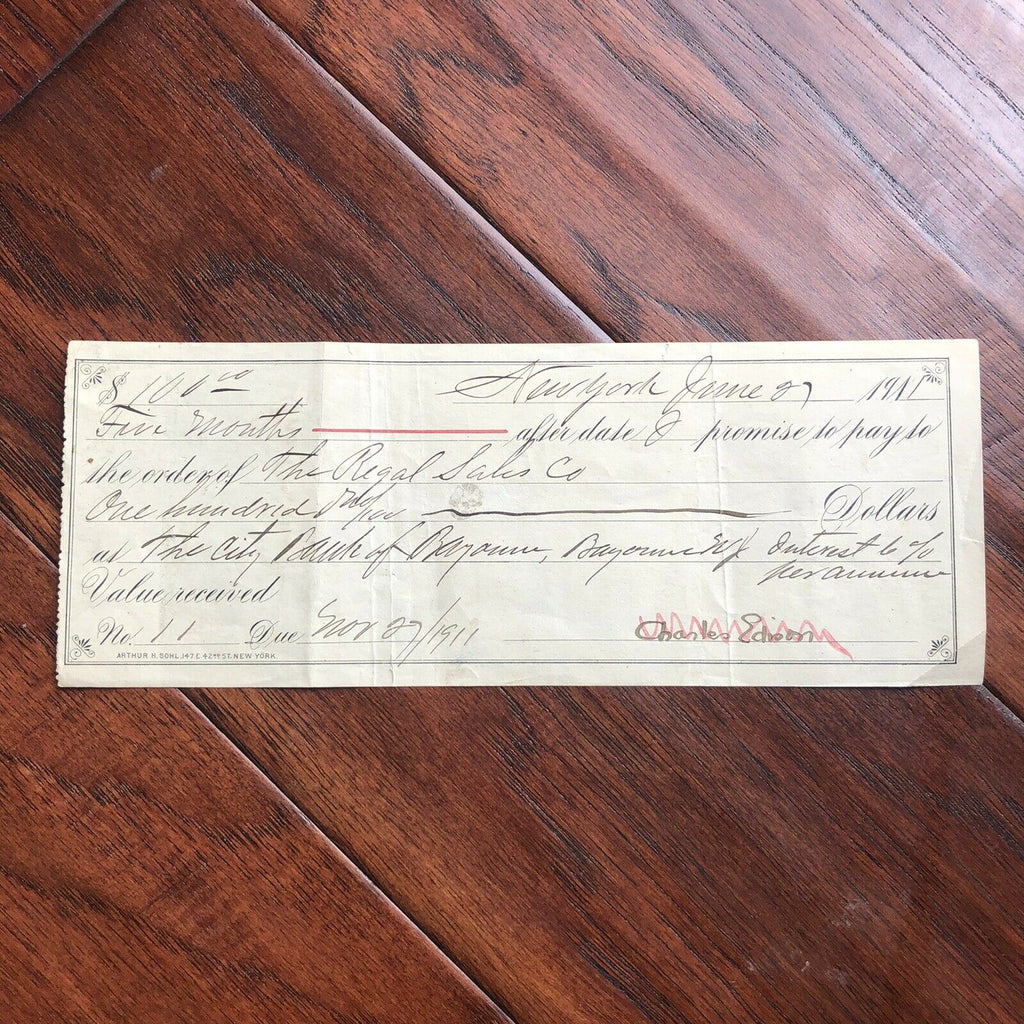 $ 100 00 New York June 27 1911
Five Months after date I promise to pay to
the order of The Regal Sales Co
One hundred no/100 Dollars
at The City Bank of Bayonne, Bayonne NJ Interest 6%
per annum
Value received
No. 11 Due Nov 27/1911 Charles Edison
ARTHUR H. SOHL 147 E. 42ND ST. NEW YORK.